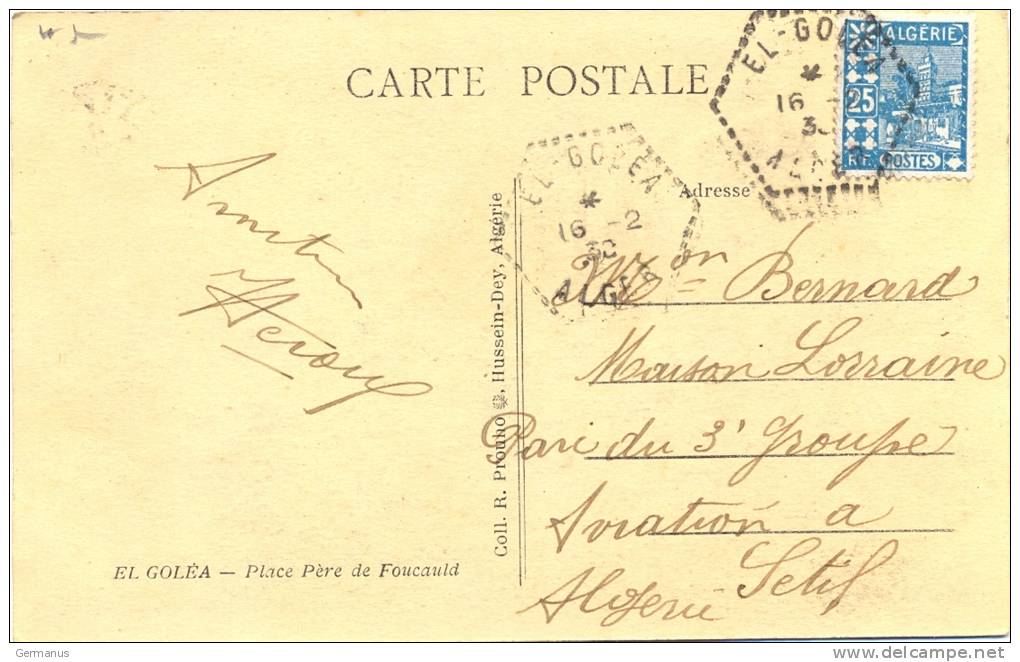 CARTE POSTALE
EL-GOLÉA
16 -2
30
ALGER
EL-GOLÉA
16 -2
ALGÉRIE
25
RF. POSTES
Adresse
Mon Bernard
Maison Lorraine
Parc du 3e Groupe
Aviation a
Setif
Algerie
Coll. R. Prouho, Hussein-Dey, Algérie
EL GOLÉA — Place Père de Foucauld
Germanus
delcampe.net